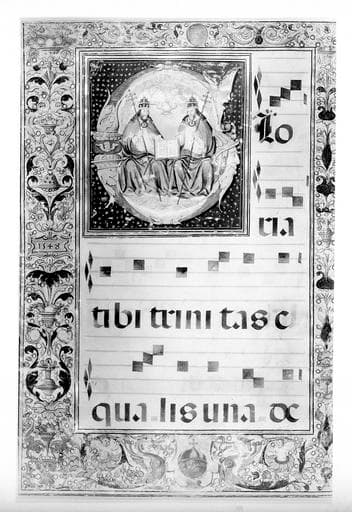 Glo
ria
1548
tibi trini tas e
qua lis una de